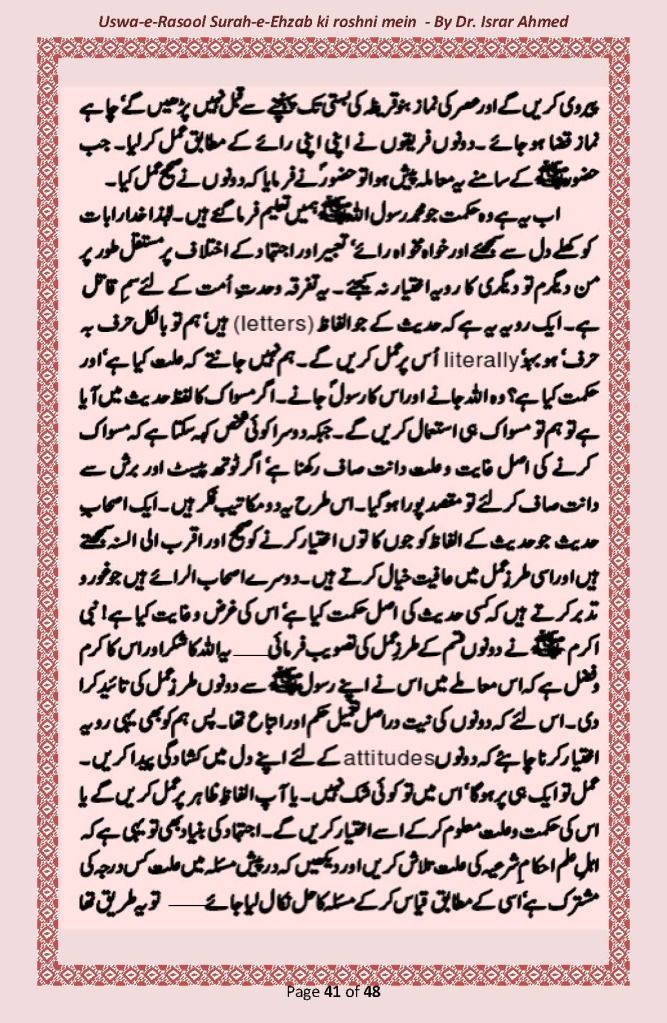 Uswa-e-Rasool Surah-e-Ehzab ki roshni mein - By Dr. Israr Ahmed
پیروی کریں گے اور عصر کی نماز بنو قریظہ کی بستی تک پہنچنے سے قبل نہیں پڑھیں گے‘ چاہے
نماز قضا ہو جائے۔ دونوں فریقوں نے اپنی اپنی رائے کے مطابق عمل کر لیا۔ جب
حضور ﷺ کے سامنے یہ معاملہ پیش ہوا تو حضورؐ نے فرمایا کہ دونوں نے صحیح عمل کیا۔
اب یہ ہے وہ حکمت جو محمد رسول اللہ ﷺ ہمیں تعلیم فرما گئے ہیں۔ لہٰذا خدارا بات
کو کھلے دل سے سمجھئے اور خواہ مخواہ رائے‘ تعبیر اور اجتہاد کے اختلاف پر مستقل طور پر
من دیگرم تو دیگری کا رویہ اختیار نہ کیجئے۔ یہ تفرقہ وحدتِ اُمت کے لئے سمِ قاتل
ہے۔ ایک رویہ یہ ہے کہ حدیث کے جو الفاظ (letters) ہیں‘ ہم تو بالکل حرف بہ
حرف‘ ہو بہو literally اُس پر عمل کریں گے۔ ہم نہیں جانتے کہ علت کیا ہے‘ اور
حکمت کیا ہے؟ وہ اللہ جانے اور اس کا رسولؐ جانے۔ اگر مسواک کا لفظ حدیث میں آیا
ہے تو ہم تو مسواک ہی استعمال کریں گے۔ جبکہ دوسرا کوئی شخص کہہ سکتا ہے کہ مسواک
کرنے کی اصل غایت و علت دانت صاف رکھنا ہے‘ اگر ٹوتھ پیسٹ اور برش سے
دانت صاف کر لئے تو مقصد پورا ہو گیا۔ اس طرح یہ دو مکاتیب فکر ہیں۔ ایک اصحابِ
حدیث جو حدیث کے الفاظ کو جوں کا توں اختیار کرنے کو صحیح اور اقرب الی السنہ سمجھتے
ہیں اور اسی طرزِ عمل میں عافیت خیال کرتے ہیں۔ دوسرے اصحاب الرائے ہیں جو غور و
تدبر کرتے ہیں کہ کسی حدیث کی اصل حکمت کیا ہے‘ اس کی غرض و غایت کیا ہے! نبی
اکرم ﷺ نے دونوں قسم کے طرزِ عمل کی تصویب فرمائی —— یہ اللہ کا شکر اور اس کا کرم
و فضل ہے کہ اس معاملے میں اس نے اپنے رسول ﷺ سے دونوں طرزِ عمل کی تائید کرا
دی۔ اس لئے کہ دونوں کی نیت دراصل تعمیل حکم اور اتباع تھا۔ پس ہم کو بھی یہی رویہ
اختیار کرنا چاہئے کہ دونوں attitudes کے لئے اپنے دل میں کشادگی پیدا کریں۔
عمل تو ایک ہی پر ہوگا‘ اس میں تو کوئی شک نہیں۔ یا آپ الفاظِ ظاہر پر عمل کریں گے یا
اس کی حکمت و علت معلوم کر کے اسے اختیار کریں گے۔ اجتہاد کی بنیاد بھی تو یہی ہے کہ
اہلِ علم احکامِ شرعیہ کی علت تلاش کریں اور دیکھیں کہ در پیش مسئلہ میں علت کس درجہ کی
مشترک ہے‘ اسی کے مطابق قیاس کر کے مسئلہ کا حل نکال لیا جائے —— تو یہ طریق تھا
Page 41 of 48